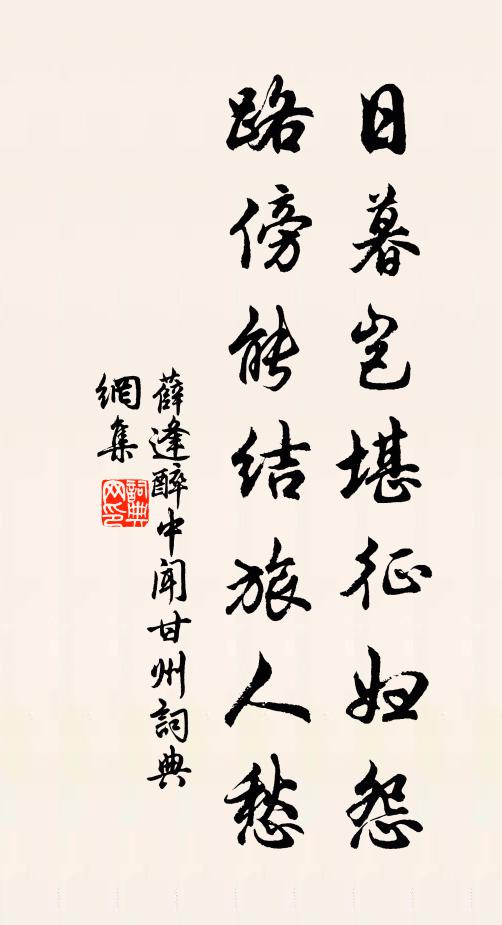 日暮岂堪征妇怨
路傍能结旅人愁
薛逢醉中闻甘州詞典
網集
詞典網印